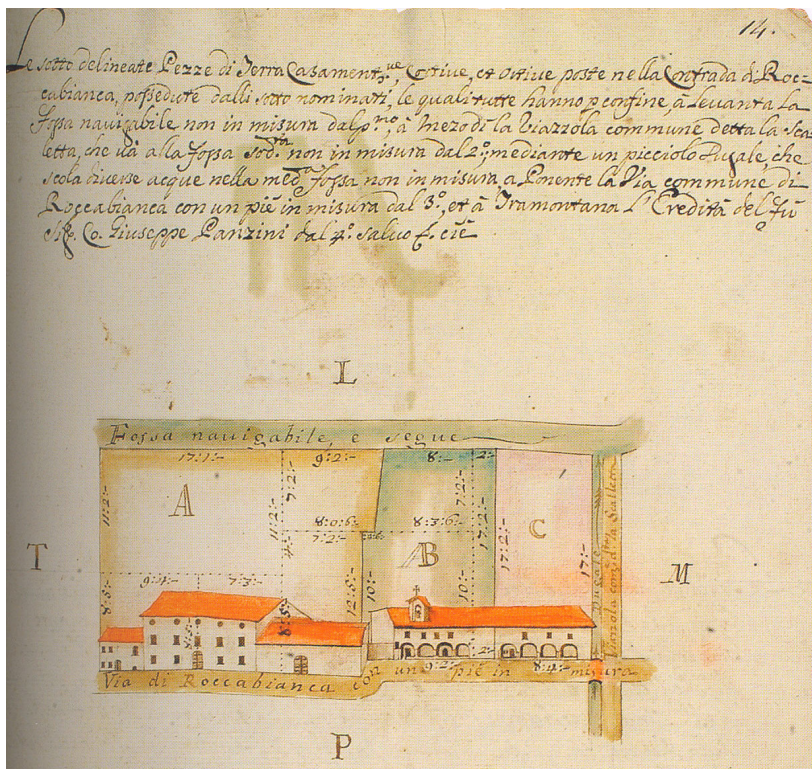 14.
Le sotto delineate Pezze di Terra Casament:ue, Cortive, et Ortive poste nella Contrada di Roc-
cabianca, possedute dalli sotto nominati, le quali tutte hanno p confine, à Levante La
Fossa navigabile non in misura dal pmo, à Mezodì la Viazzola commune detta la Sca-
letta, che và alla fossa sodta non in misura dal 2º, mediante un picciolo Dugale, che
scola diverse acque nella medma fossa non in misura à Ponente la Via commune di
Roccabianca con un piè in misura dal 3º, et à Tramontana l'Eredità del fù
Sig. Co. Giuseppe Panzini dal 4º salvo
L
Fossa navigabile, e segue
17:1:- 9:2:- 8:- 2:-
A
11:2:- 11:2:- 7:2:- 7:2:- 17:2:- 17:2:- 17:-
8:0:6:- 8:3:6:-
C
4:- 7:2:-
T AB M
9:4:- 7:3:-
8:5:- 8:5:- 8:5:- 12:5:- 10:- 10:-
Dugale
Viazola con.
9:2:- 2:- 8:4:-
Via di Roccabianca con un piè in misura
P